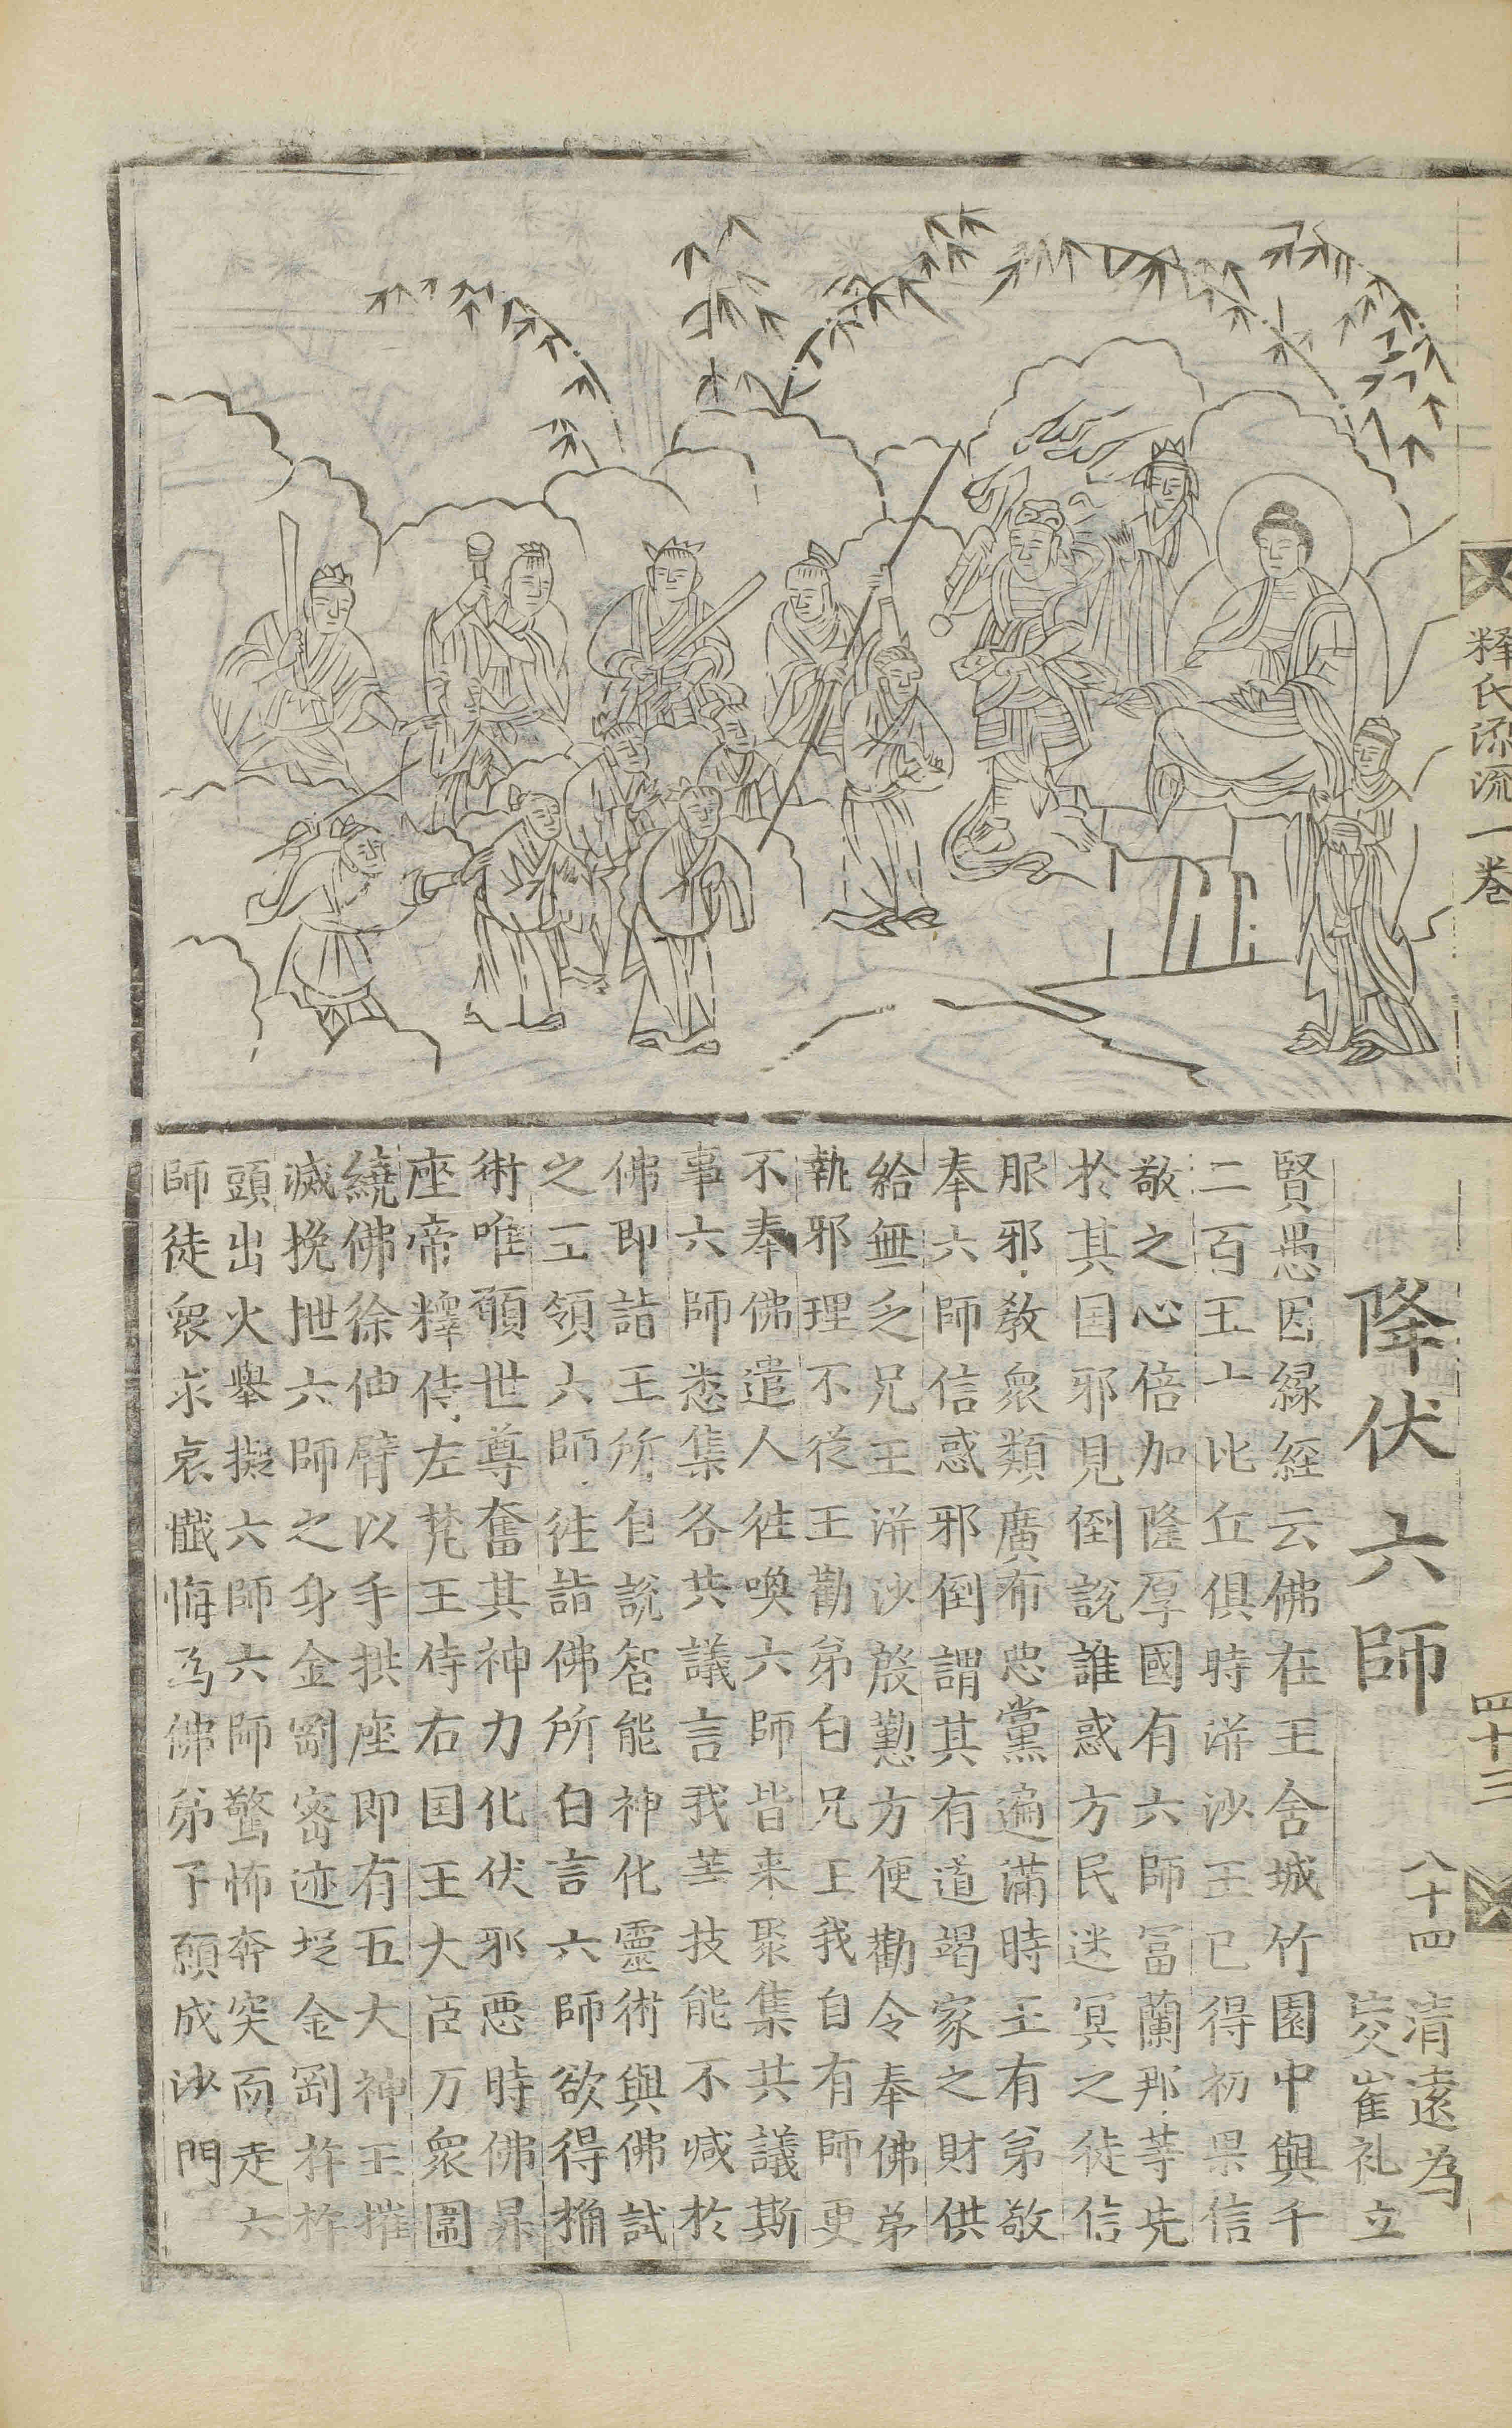 釋氏源流一卷
四十三
降伏六師
八十四
清遠為
父崔礼立
賢愚因緣經云佛在王舍城竹園中與千
二百五十比丘俱時洴沙王已得初果信
敬之心倍加隆厚國有六師富蘭那等先
於其国邪見倒說誰惑方民迷冥之徒信
服邪教衆類廣布恶黨遍滿時王有弟敬
奉六師信惑邪倒謂其有道竭家之財供
給無乏兄王洴沙慇懃方便勸令奉佛弟
執邪理不從王勸弟白兄王我自有師更
不奉佛遣人徃喚六師皆来聚集共議斯
事六師悉集各共議言我䓁技能不减於
佛即詣王所自說智能神化靈術與佛試
之王領六師徃詣佛所白言六師欲得捔
術唯願世尊奮其神力化伏邪恶時佛昇
座帝釋侍左梵王侍右国王大臣万衆圍
繞佛徐伸臂以手拱座即有五大神王摧
滅挽拽六師之身金剛密迹捉金剛杵杵
頭出火舉擬六師六師驚怖奔突而走六
師徒衆求哀懺悔爲佛弟子願成沙門